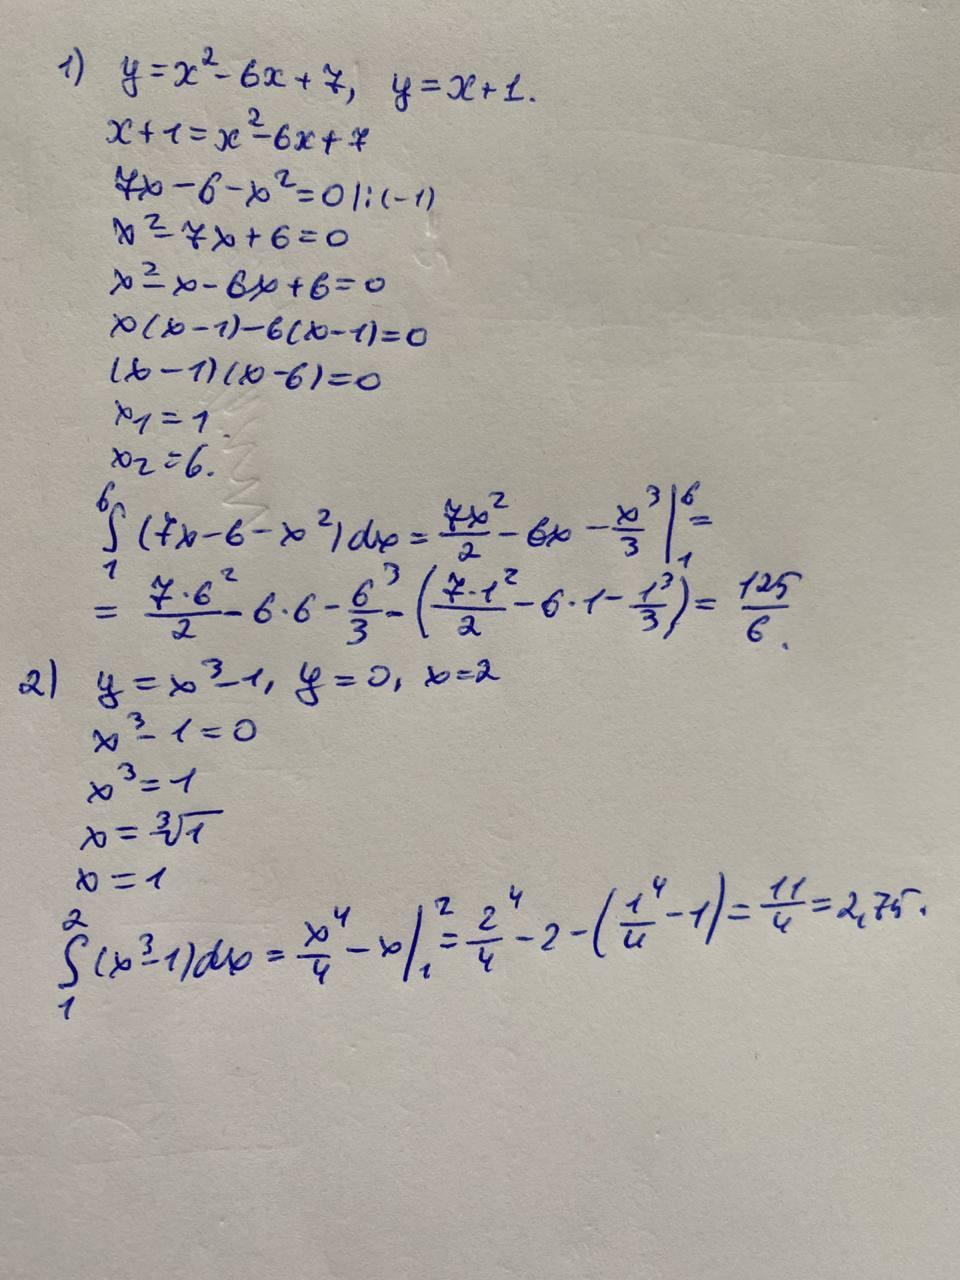 1) y = x² - 6x + 7, y = x + 1.
x + 1 = x² - 6x + 7
7x - 6 - x² = 0 |:(-1)
x² - 7x + 6 = 0
x² - x - 6x + 6 = 0
x(x - 1) - 6(x - 1) = 0
(x - 1)(x - 6) = 0
x₁ = 1.
x₂ = 6.
∫₁⁶ (7x - 6 - x²)dx = 7x²/2 - 6x - x³/3 |₁⁶ =
= 7·6²/2 - 6·6 - 6³/3 - (7·1²/2 - 6·1 - 1³/3) = 125/6.
2) y = x³ - 1, y = 0, x = 2
x³ - 1 = 0
x³ = 1
x = ∛1
x = 1
∫₁² (x³ - 1)dx = x⁴/4 - x |₁² = 2⁴/4 - 2 - (1⁴/4 - 1) = 11/4 = 2,75.